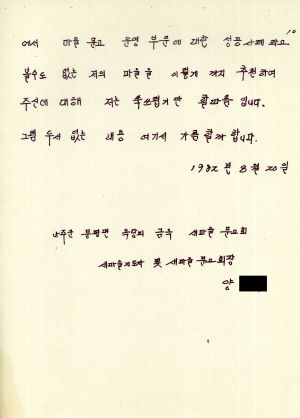 10
에서 마을 문고 운영 부문에 대한 성공사례 라고
볼수도 없는 저의 마을을 이렇게 까지 추천하여
주신데 대해 저는 쑥쓰럽기만 할따름 입니다.
그럼 두서 없는 내용 여기서 가름할까 합니다.
1982 년 8 월 20 일
나주군 문평면 금우 새마을 문고회
새마을지도자 및 새마을 문고회장
양